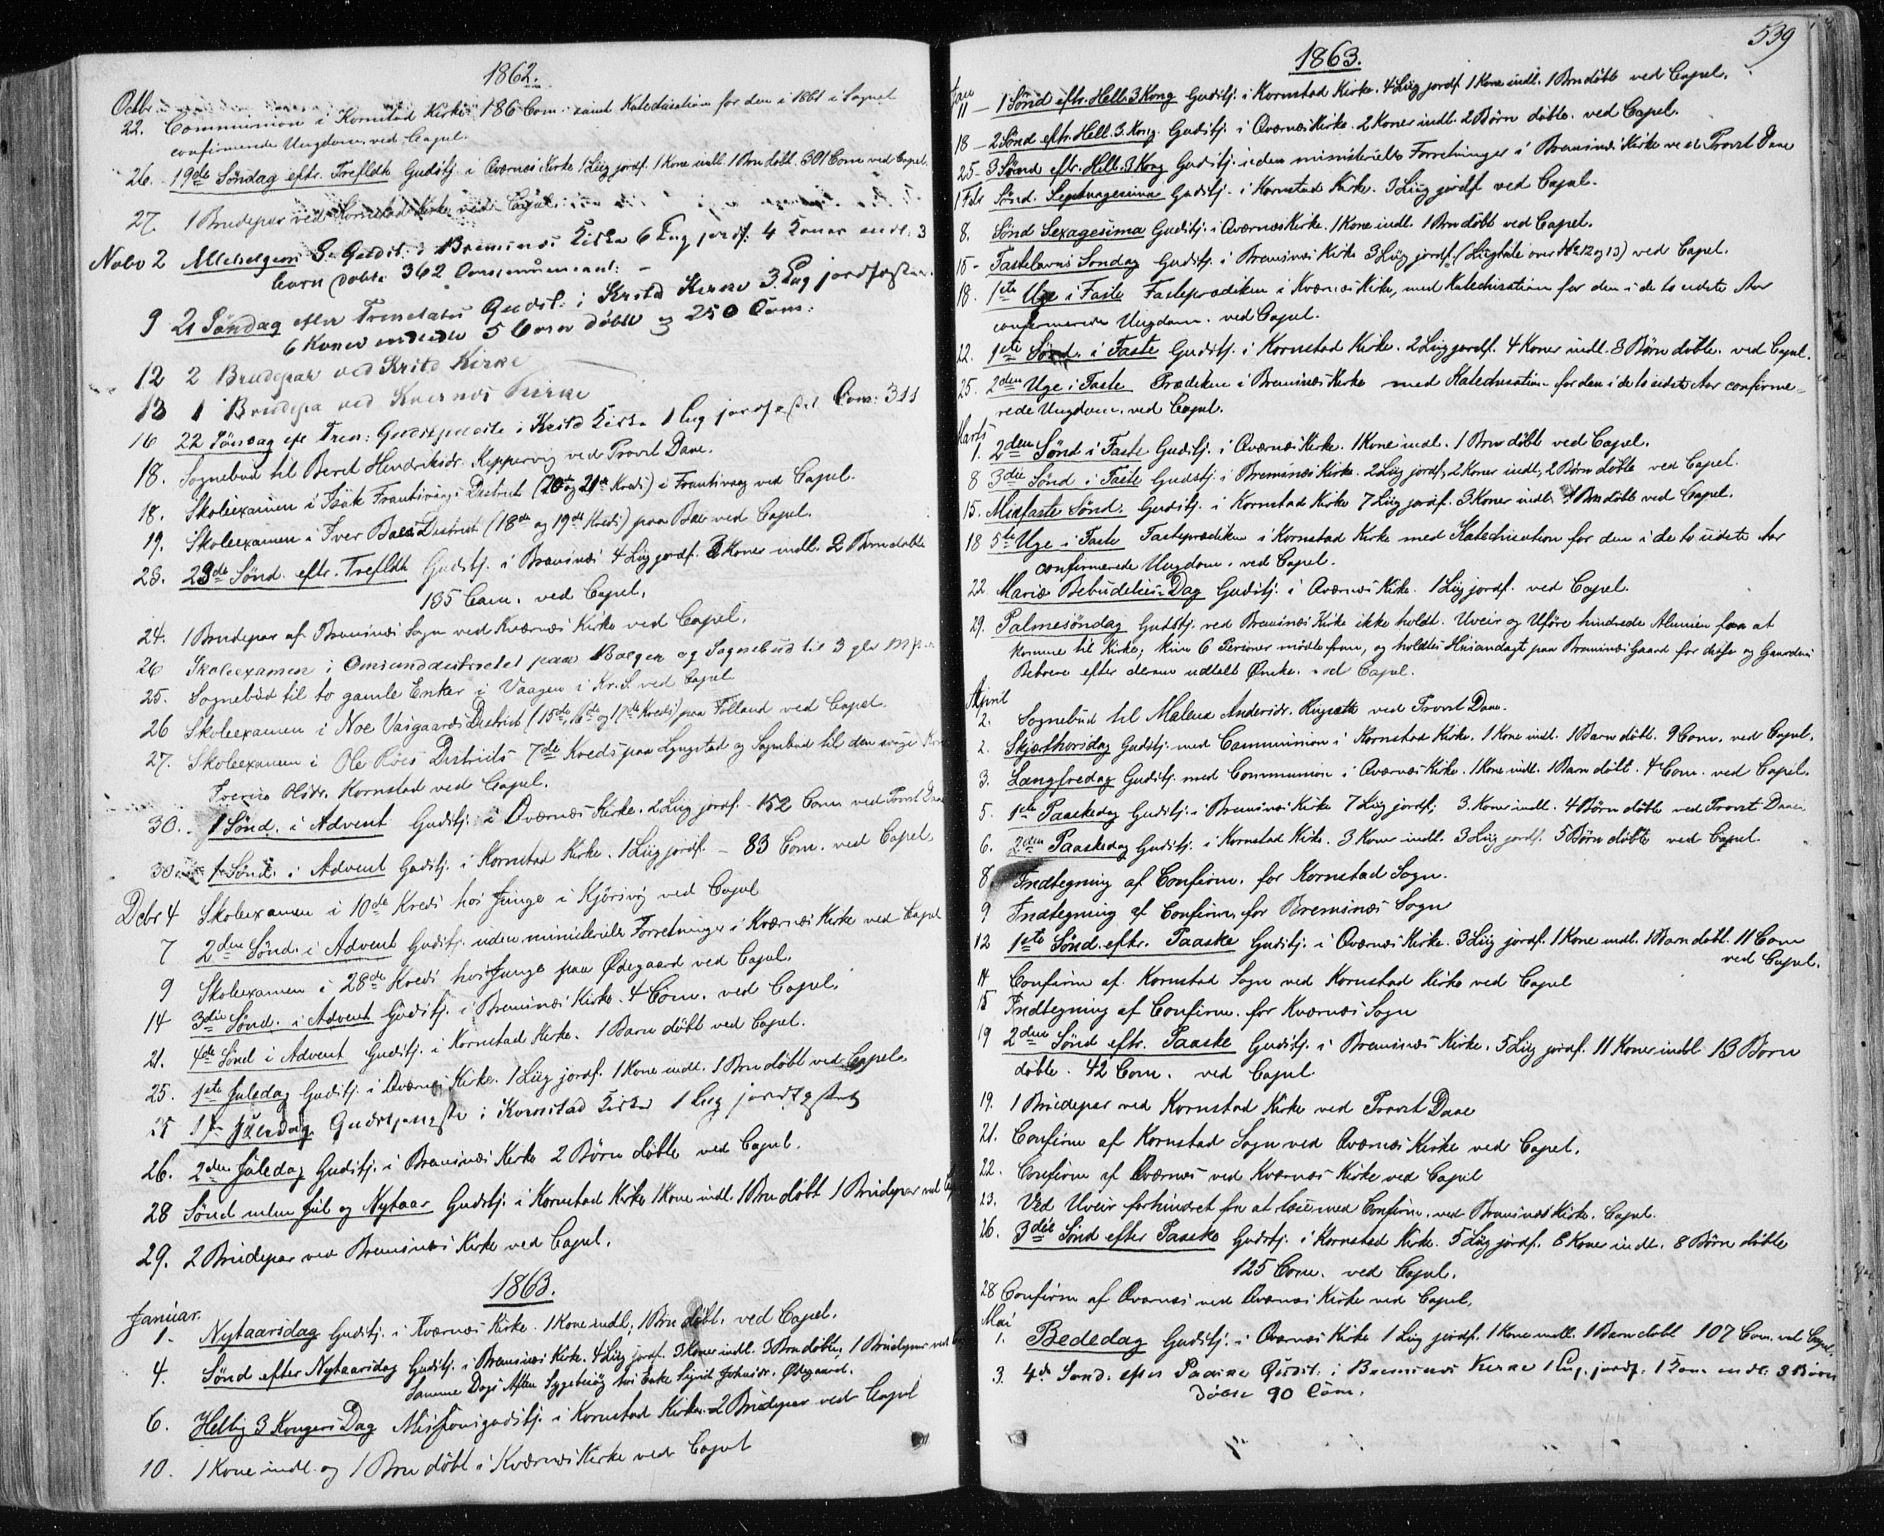 1862.
Octbr.
22. Communion i Kornstad Kirke 186 Com. samt Katechisation for den i 1861 i Sognet
confirmerede Ungdom, ved Capel.
26. 19de Søndag eftr. Trefldh Gudstj. i Qværnes Kirke 1 Liig jordf. 1 Kone indl. 1 Brn døbt. 301 Com ved Capel.
27. 1 Brudepar ved Kornstad Kirke ved Capel.
Novbr 2 Allehelgens S. Gudst. i Bremsnes Kirke 6 Lig jordf. 4 Koner indl. 3
børn døbte 362 Communicant: –
9 21 Søndag efter Trinitatis Gudst: i Krstd Kirke 3 Lig jordfæstede
6 Koner indledte 5 Børn døbte 250 Com:
12 2 Brudepar ved Krstd Kirke
13 1 Brudepa ved Kvernes Kirke
16 22 Sönsag eft Tren: Gudstjeneste i Krstd Kirke 1 Lig jordfæstet Com: 311
18. Sognebud til Beret Hendriksdr. Keppervig ved Provst Dane.
18. Skoleexamen i Isak Frantsvaags District (20de og 21de Kreds) i Frantsvaag ved Capel.
19. Skoleexamen i Iver Baes District (18de og 19de Kreds) paa Bae ved Capel.
23. 23de Sønd. eftr. Trefldh Gudstj. i Bremsnes 4 Liig jordf. 2 Koner indl. 2 Brn døbte
185 Com. ved Capel.
24. 1 Brudepar af Bremsnes Sogn ved Kværnes Kirke ved Capel.
26 Skoleexamen i Omsunddistrictet paa Bolgen og Sognebud til 3 gle
25. Sognebud til to gamle Enker i Vaagen i Kr.S. ved Capel
26 Skoleexamen i Noe Vasgaards District (15de, 16de og 17de Kreds) paa Folland ved Capel.
27. Skoleexamen i Ole Röes Districts 7de Kreds paa Lyngstad og Sognebud til den svage
Olsdr. Kornstad ved Capel.
30. 1 Sønd. i Advent Gudstj. i Qværnes Kirke. 2 Liig jordf. – 152 Com ved Provst Dane
30. 1 Sønd. i Advent Gudstj. i Kornstad Kirke. 1 Liig jordf. – 83 Com. ved Capel.
Dcbr 4 Skoleexamen i 10de Kreds hos Junge i Kjörsvig ved Capel
7 2den Sønd. i Advent Gudstj. uden ministerielle Forretninger i Kværnes Kirke ved Capel
9 Skoleexamen i 28de Kreds hos Junge paa Ødegaard ved Capel.
14 3die Sønd. i Advent Gudstj. i Bremsnes Kirke. 4 Com. ved Capel.
21. 4de Sönd i Advent Gudstj. i Kornstad Kirke. 1 Barn døbt ved Capel.
25. 1ste Juledag Gudstj. i Qværnes Kirke. 1 Liig jordf. 1 Kone indl. 1 Brn døbt ved Capel.
25 1te Juledag Gudstjeneste i Kornstad Kirke 1 Lig jordfæstet
26. 2den Juledag Gudstj. i Bremsnes Kirke 2 Børn døbte ved Capel.
28 Sønd mlm Jul og Nytaar Gudstj. i Kornstad Kirke 1 Kone indl. 1 Brn døbt 1 Brudepar ved Cap
29. 2 Brudepar ved Bremsnes Kirke ved Capel.
1863.
Januar.
1. Nytaarsdag Gudstj. i Kværnes Kirke. 1 Kone indl. 1 Brn døbt. ved Capel.
4. Sønd efter Nytaarsdag Gudstj. i Bremsnes Kirke. 4 Liig jordf. 3 Koner indl. 3 Brn døbte. 1 Brudepar ved
Samme Dags Aften Sygebesøg hos Enke Sigrid Johnsdr. Ødegaard.
6. Hellig 3 Kongers Dag Missionsgudstj. i Kornstad Kirke. 2 Brudepar ved Capel
10. 1 Kone indl. og 1 Brn døbt i Kværnes Kirke ved Capel
539
1863.
Jan
11 – 1 Sönd eftr. Hell. 3 Kong Gudstj. i Kornstad Kirke. 4 Liig jordf. 1 Kone indl. 1 Brn døbt ved Capel.
18 – 2 Sönd eftr. Hell. 3. Kong. Gudstj. i Qværnes Kirke. 2 Koner indl. 2 Börn døbte. ved Capel.
25 – 3 Sønd eftr. Hell. 3 Kong Gudstj. uden ministerielle Forretninger i Bremsnes Kirke ved Provst Dane
1 Febr Sønd. Septuagesima Gudstj. i Kornstad Kirke. 3 Liig jordf ved Capel.
8. Sønd Sexagesima Gudstj. i Qværnes Kirke. 1 Kone indl. 1 Brn døbt ved Capel.
15 – Fastelavns Søndag Gudstj. i Bremsnes Kirke 3 Liig jordf. (Liigtale over No 12 og 13) ved Capel.
18. 1ste Uge i Faste Fasteprædiken i Kværnes Kirke, med Katechisation for den i de to sidste Aar
confirmerede Ungdom. ved Capel.
22. 1ste Sønd. i Faste Gudstj. i Kornstad Kirke. 2 Liig jordf. 4 Koner indl. 3 Børn døbte. ved Capel.
25. 2den Uge i Faste Prædiken i Bremsnes Kirke med Katechisation for den i de to sidste Aar confirme=
rede Ungdom. ved Capel.
Marts
1. 2den Sønd i Faste Gudstj. i Qværnes Kirke. 1 Kone indl. 1 Brn døbt ved Capel.
8 3die Sønd i Faste Gudstj. i Bremsnes Kirke. 2 Liig jordf. 2 Koner indl. 2 Børn døbte ved Capel.
15. Midfaste Sønd. Gudstj. i Kornstad Kirke 7 Liig jordf. 3 Koner indl. 1 Brn døbt ved Capel.
18 5te Uge i Faste Fasteprædiken i Kornstad Kirke med Katechisation for den i de to sidste Aar
confirmerede Ungdom. ved Capel.
22 Mariæ Bebudelses-Dag Gudstj. i Qværnes Kirke. 1 Liig jordf. ved Capel.
29. Palmesöndag Gudstj. ved Bremsnes Kirke ikke holdt. Uveir og Uføre hindrede Almuen fra at
komme til Kirke; kun 6 Personer mødte frem, og holdtes Husandagt paa Bremsnes Gaard for disse og Gaardens
Beboere efter deres udtalt Ønske. ved Capel.
April
2. Sognebud til Malena Andersdr. ved Provst Dane.
2. Skjærthorsdag Gudstj. med Communion i Kornstad Kirke. 1 Kone indl. 1 Barn døbt. 9 Com. ved Capel.
3. Langfredag Gudstj. med Communion i Qværnes Kirke. 1 Kone indl. 1 Barn døbt. 4 Com. ved Capel.
5. 1ste Paaskedag Gudstj. i Bremsnes Kirke 7 Liig jordf; 3 Koner indl. 4 Børn døbte ved Provst Dane
6. 2den Paaskedag Gudstj. i Kornstad Kirke. 3 Koner indl. 3 Liig jordf. 5 Børn døbte ved Capel.
8. Indtegning af Confirm. for Kornstad Sogn.
9 Indtegning af Confirm. for Bremsnes Sogn
12 1ste Sønd. eftr. Paaske Gudstj. i Qværnes Kirke. 3 Liig jordf. 1 Kone indl. 1 Barn døbt. 11 Com
ved Capel.
14 Confirm af. Kornstad Sogn ved Kornstad Kirke ved Capel
15 Indtegning af Confirm. for Kværnes Sogn
19 2den Sønd eftr. Paaske Gudstj. i Bremsnes Kirke. 5 Liig jordf. 11 Koner indl 13 Børn
døbte. 42 Com. ved Capel
19. 1 Brudepar ved Kornstad Kirke ved Provst Dane
21. Confirm af Kornstad Sogn ved Qværnes Kirke ved Capel.
22. Confirm af Qværnes ved Kværnes Kirke ved Capel
23. Ved Uveir forhindret fra at læse med Confirm. ved Bremsnes Kirke. Capel.
26. 3die Sønd efter Paaske Gudstj. i Kornstad Kirke. 5 Liig jordf. 8 Koner indl. 8 Børn døbte
125 Com. ved Capel.
28 Confirm af Qværnes ved Qværnes Kirke ved Capel.
Mai
1. Bededag Gudstj. i Qværnes Kirke 1 Liig jordf. 1 Kone indl. 1 Barn døbt 107 Com. ved Capel.
3. 4de Sønd. efter Paaske Gudst. i Bremsnes Kirke 1 Lig. jordf. 1 Kon. indl. 3 Børn
Døbte 90 Com.